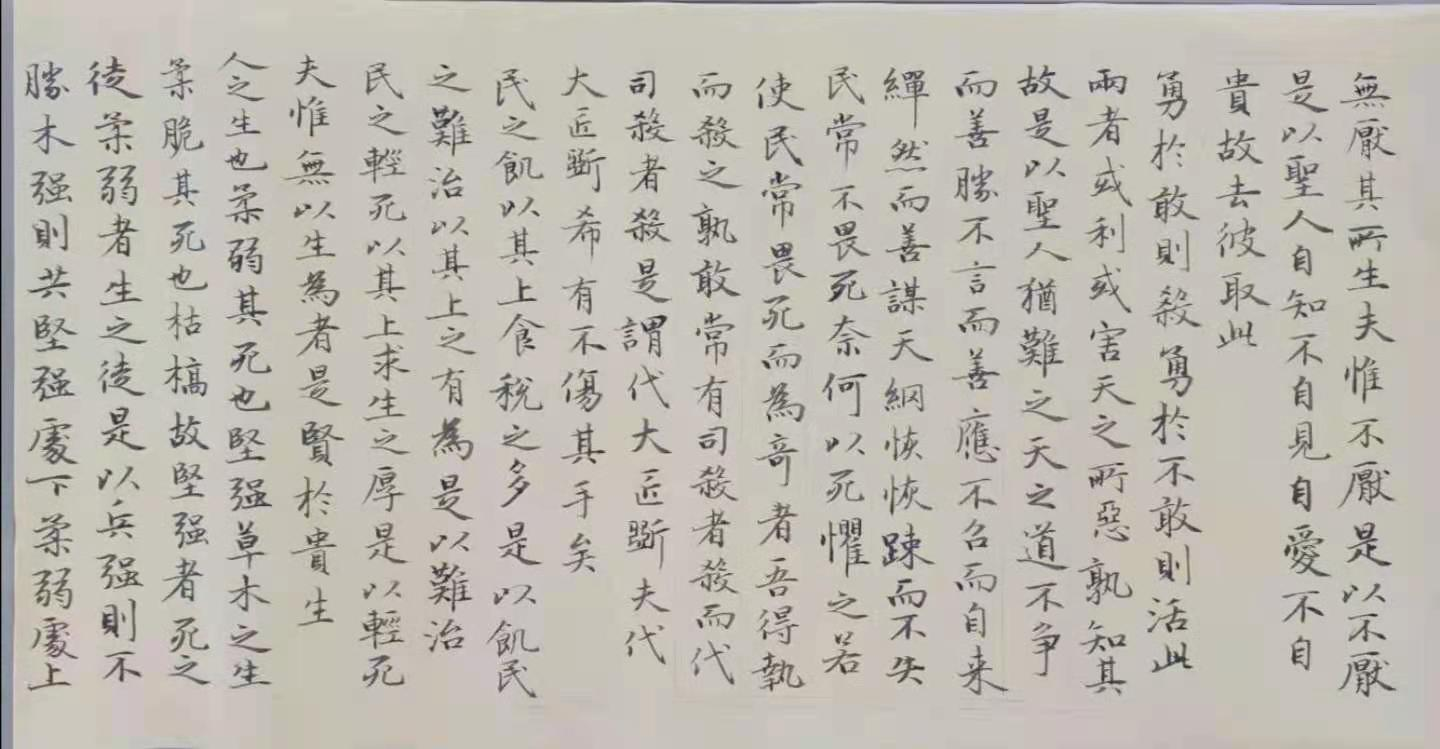 無厭其所生夫惟不厭是以不厭
是以聖人自知不自見自愛不自
貴故去彼取此
勇於敢則殺勇於不敢則活此
兩者或利或害天之所惡孰知其
故是以聖人猶難之天之道不争
而善勝不言而善應不召而自来
繟然而善謀天網恢恢踈而不失
民常不畏死奈何以死懼之若
使民常畏死而為竒者吾得執
而殺之孰敢常有司殺者殺而代
司殺者殺是謂代大匠斲夫代
大匠斲希有不傷其手矣
民之飢以其上食税之多是以飢民
之難治以其上之有為是以難治
民之輕死以其上求生之厚是以輕死
夫惟無以生為者是賢於貴生
人之生也柔弱其死也堅强草木之生
柔脆其死也枯槁故堅强者死之
徒柔弱者生之徒是以兵强則不
勝木强則共堅强處下柔弱處上